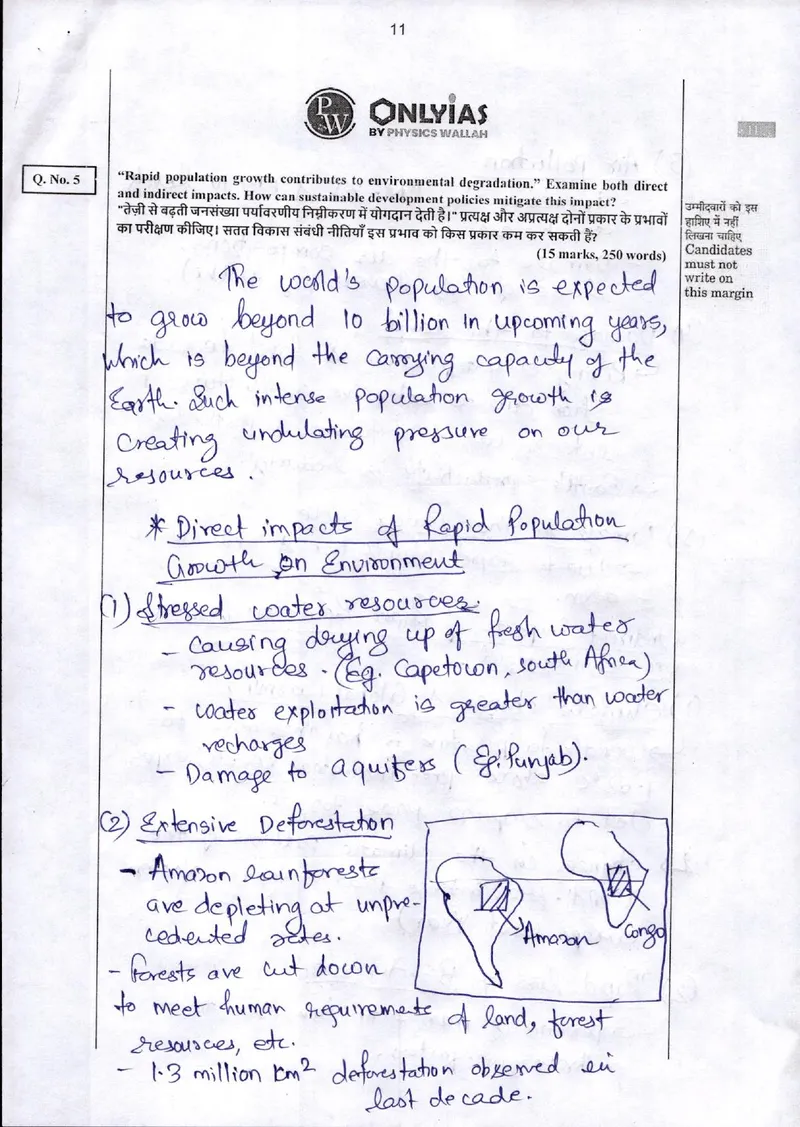 11
PW ONLYIAS
BY PHYSICS WALLAH
11
Q. No. 5
“Rapid population growth contributes to environmental degradation.” Examine both direct
and indirect impacts. How can sustainable development policies mitigate this impact?
"तेज़ी से बढ़ती जनसंख्या पर्यावरणीय निम्नीकरण में योगदान देती है।" प्रत्यक्ष और अप्रत्यक्ष दोनों प्रकार के प्रभावों
का परीक्षण कीजिए। सतत विकास संबंधी नीतियाँ इस प्रभाव को किस प्रकार कम कर सकती हैं?
(15 marks, 250 words)
उम्मीदवारों को इस
हाशिए में नहीं
लिखना चाहिए
Candidates
must not
write on
this margin
The world's population is expected
to grow beyond 10 billion in upcoming years,
which is beyond the carrying capacity of the
Earth. Such intense population growth is
creating undulating pressure on our
resources.
* Direct impacts of Rapid Population
Growth on Environment
(1) Stressed water resources:
- Causing drying up of fresh water
resources. (Eg. Capetown, South Africa)
- Water exploitation is greater than water
recharges
- Damage to aquifers (Eg: Punjab).
(2) Extensive Deforestation
- Amazon rainforests
are depleting at unpre-
cedented rates.
- Forests are cut down
to meet human requirements of land, forest
resources, etc.
- 1.3 million km² deforestation observed in
last decade.
Amazon
Congo